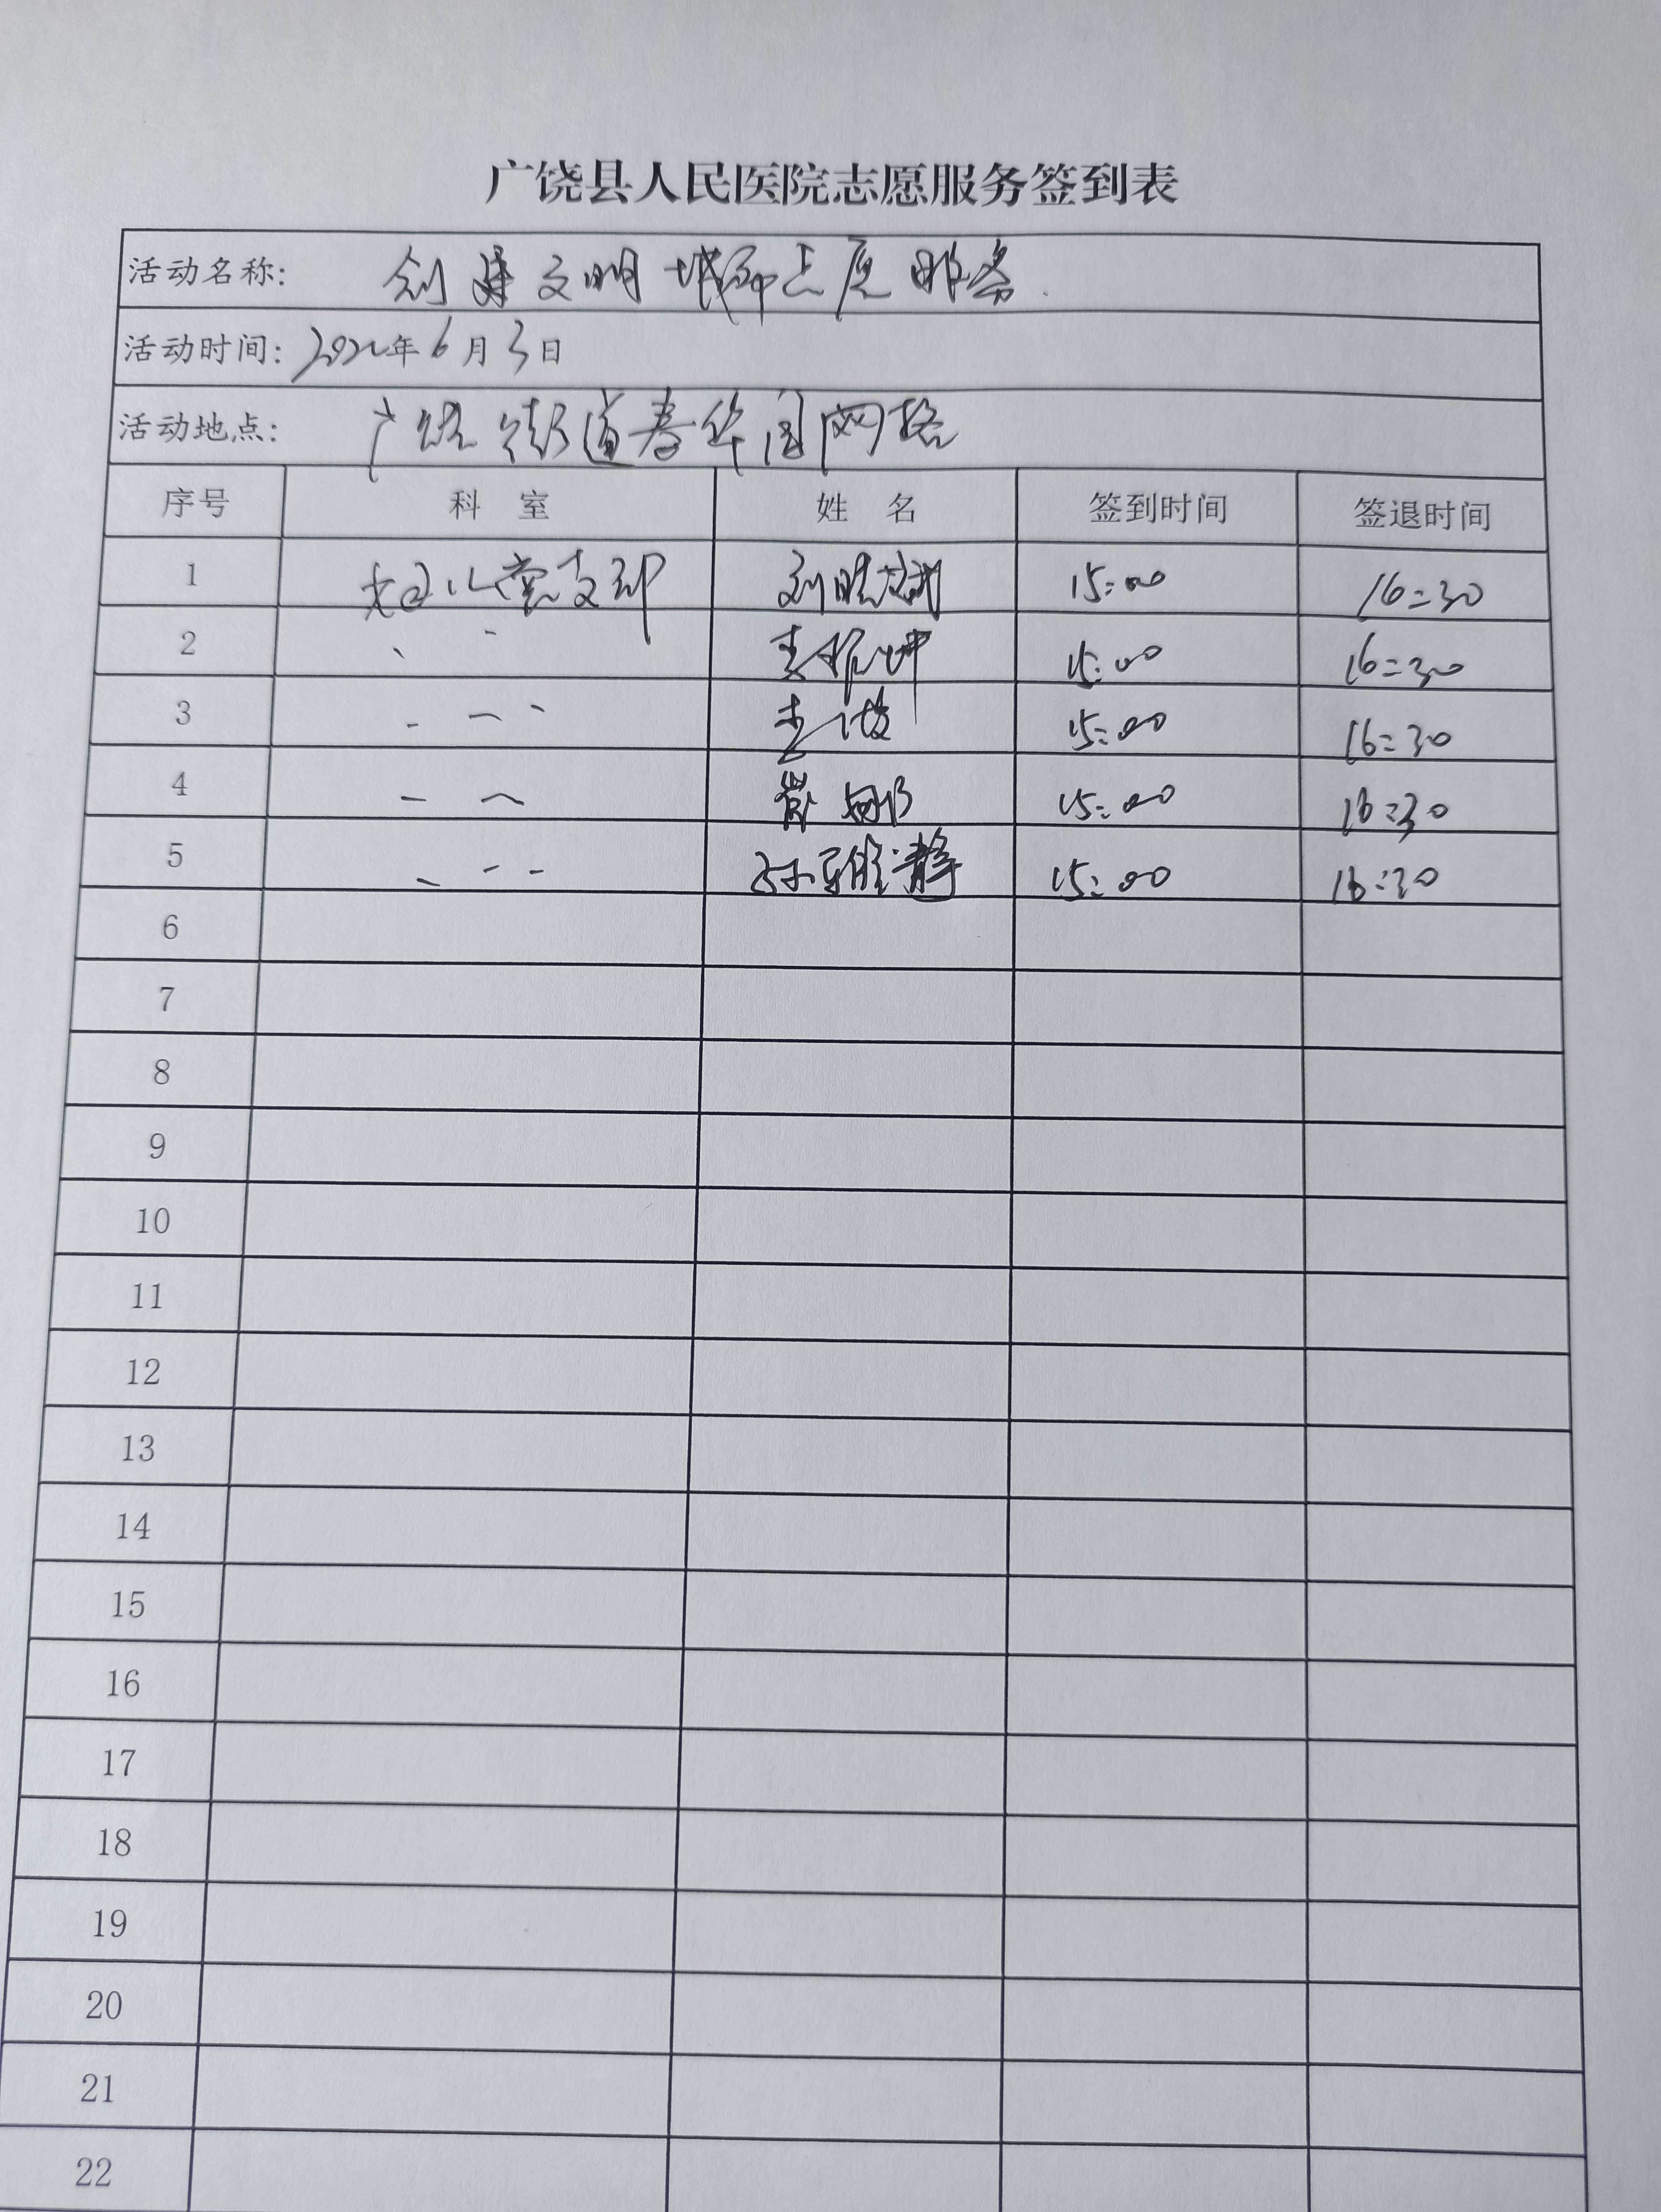 广饶县人民医院志愿服务签到表
活动名称: 创建文明城市志愿服务.
活动时间: 2022年6月3日
活动地点: 广饶街道春华园网格
序号 科 室 姓 名 签到时间 签退时间
1 妇儿党支部 15:00 16:30
2 15:00 16:30
3 15:00 16:30
4 15:00 16:30
5 孙雅静 15:00 16:30
6
7
8
9
10
11
12
13
14
15
16
17
18
19
20
21
22